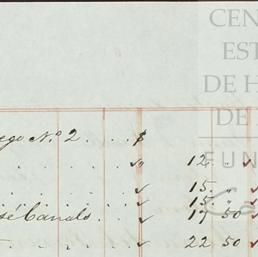 CEN
EST
DE H
DE
FUN
ego N.º 2 . . . . $
12 "
15 "
15 "
sé Canals . . 17 50
22 50